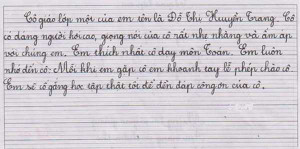 Cô giáo lớp một của em tên là Đỗ Thị Huyền Trang. Cô
có dáng người hơi cao, giọng nói của cô rất nhẹ nhàng và ấm áp
với chúng em. Em thích nhất cô dạy môn Toán. Em luôn
nhớ đến cô. Mỗi khi em gặp cô em khoanh tay lễ phép chào cô.
Em sẽ cố gắng học tập thật tốt để đền đáp công ơn của cô.